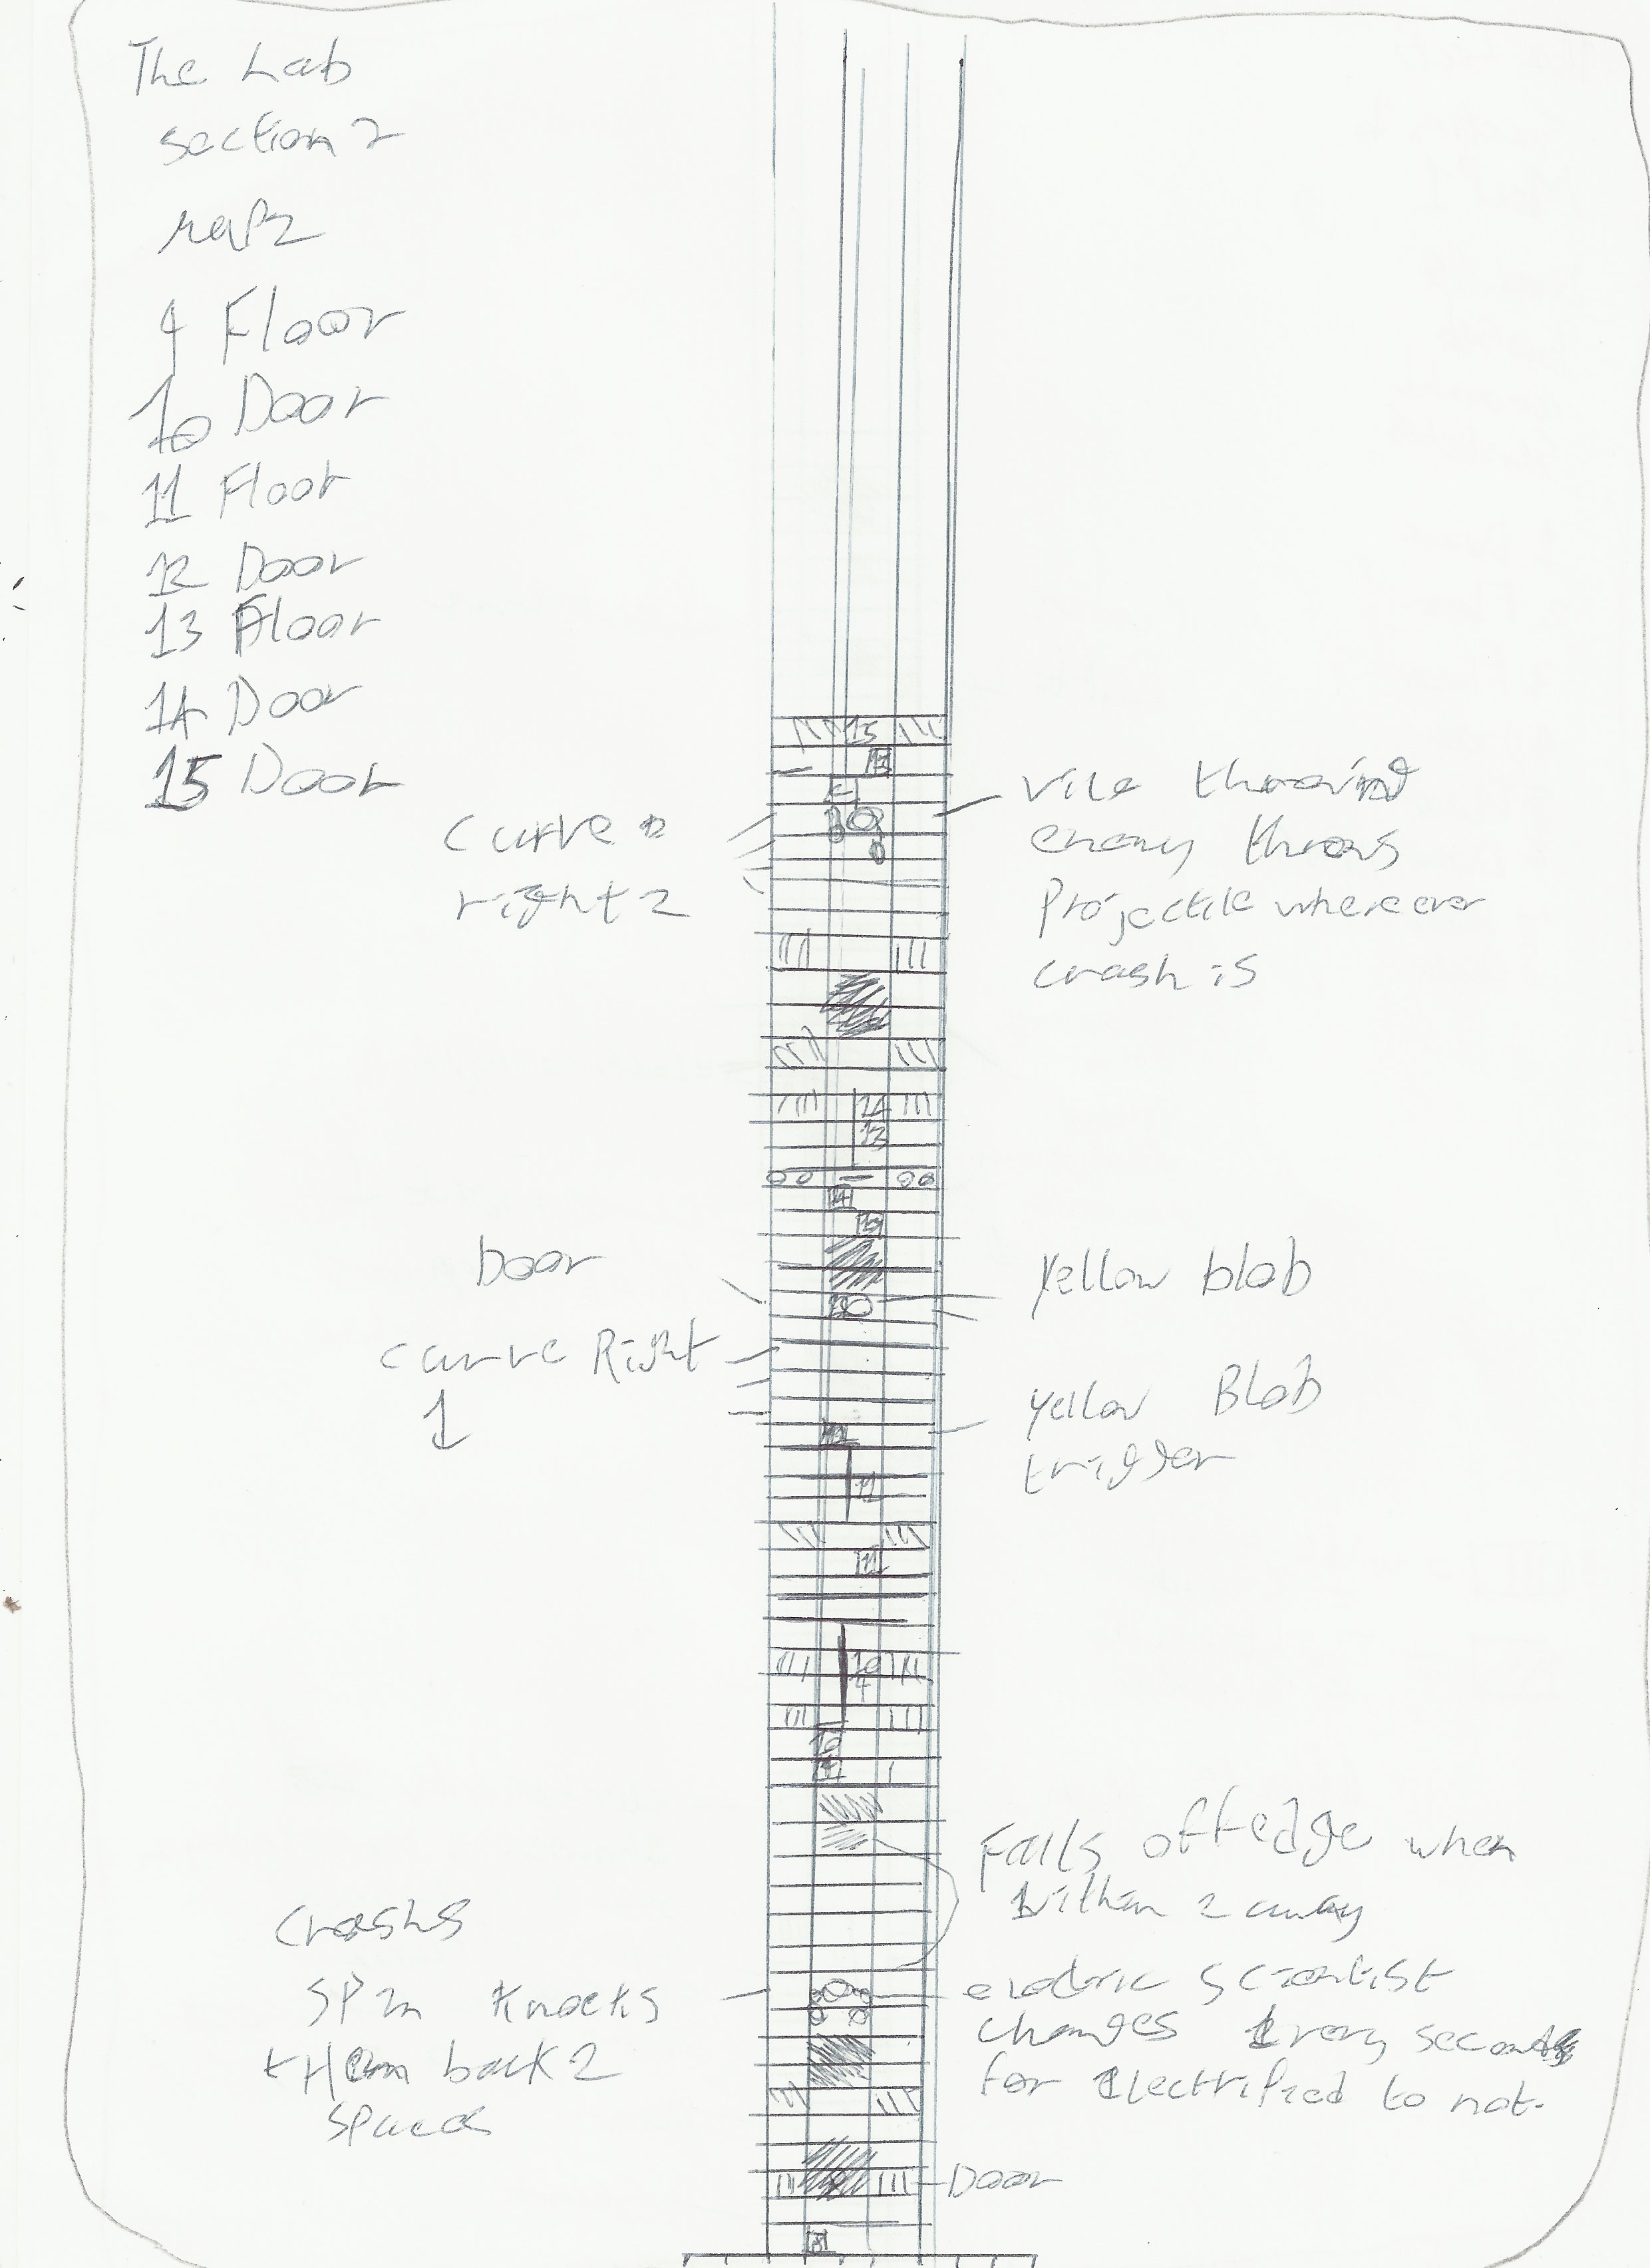 The Lab
section 2
map 2
9 Floor
10 Door
11 Floor
12 Door
13 Floor
14 Door
15 Door
Curve
right 2
vile throwing
enemy throws
Projectile whereever
crash is
15
14
13
14
13
Door
Yellow blob
Curve Right
1
Yellow Blob
trigger
12
11
11
10
9
10
Falls off edge when
within 2 away
Crashs
SPin Knocks
tHem back 2
Spaces
electric Scientist
changes Every seconds
for Electrified to not.
Door